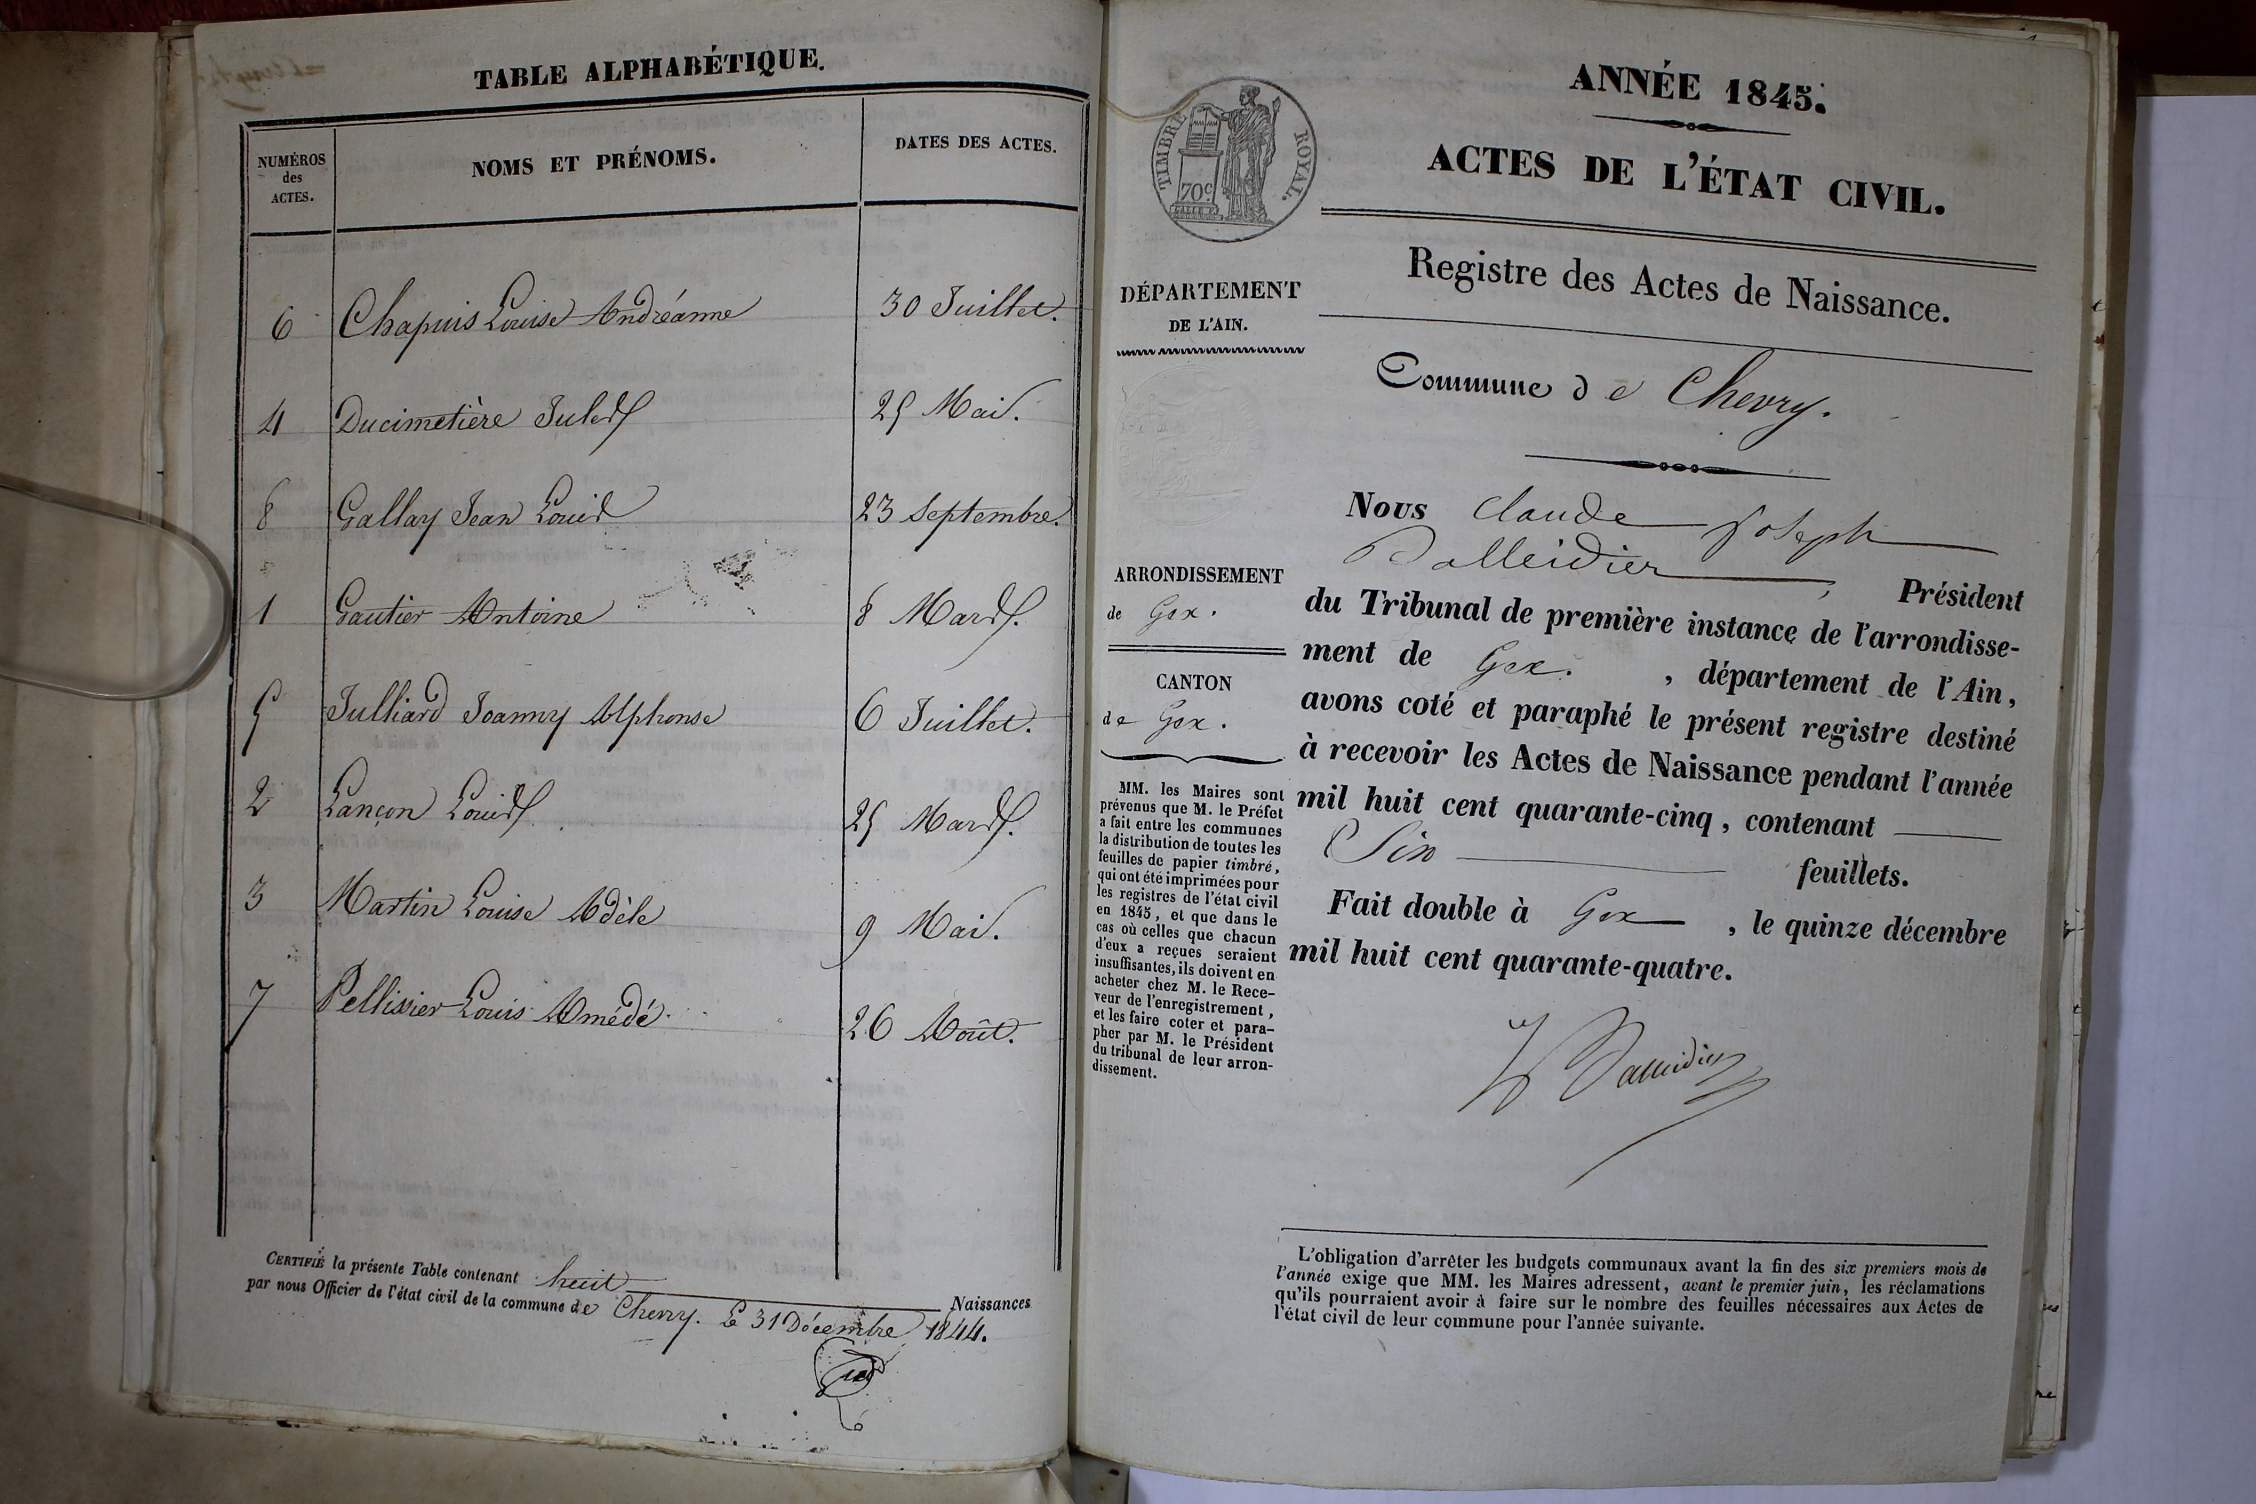 TABLE ALPHABÉTIQUE.
NUMÉROS des ACTES.
NOMS ET PRÉNOMS.
DATES DES ACTES.
6 Chapuis Louise Andréanne 30 Juillet.
4 Ducimetière Jules 25 Mai.
8 Gallay Jean Louis 23 Septembre.
1 Gautier Antoine 8 Mars.
5 Julliard Joanny Alphonse 6 Juillet.
2 Lançon Louis 25 Mars.
3 Martin Louise Adèle 9 Mai.
7 Pellissier Louis Amédé 26 Août.
CERTIFIÉ la présente Table contenant huit Naissances
par nous Officier de l'état civil de la commune de Chevry. Le 31 Décembre 1844.
TIMBRE ROYAL.
70c
ANNÉE 1845.
ACTES DE L'ÉTAT CIVIL.
Registre des Actes de Naissance.
DÉPARTEMENT
DE L'AIN.
Commune de Chevry.
ARRONDISSEMENT
de Gex.
CANTON
de Gex.
MM. les Maires sont
prévenus que M. le Préfet
a fait entre les communes
la distribution de toutes les
feuilles de papier timbré,
qui ont été imprimées pour
les registres de l'état civil
en 1845, et que dans le
cas où celles que chacun
d'eux a reçues seraient
insuffisantes, ils doivent en
acheter chez M. le Rece-
veur de l'enregistrement,
et les faire coter et para-
pher par M. le Président
du tribunal de leur arron-
dissement.
Nous Claude Joseph
Balleidier, Président
du Tribunal de première instance de l'arrondisse-
ment de Gex. , département de l'Ain,
avons coté et paraphé le présent registre destiné
à recevoir les Actes de Naissance pendant l'année
mil huit cent quarante-cinq, contenant
Six feuillets.
Fait double à Gex , le quinze décembre
mil huit cent quarante-quatre.
Balleidier
L'obligation d'arrêter les budgets communaux avant la fin des six premiers mois de
l'année exige que MM. les Maires adressent, avant le premier juin, les réclamations
qu'ils pourraient avoir à faire sur le nombre des feuilles nécessaires aux Actes de
l'état civil de leur commune pour l'année suivante.